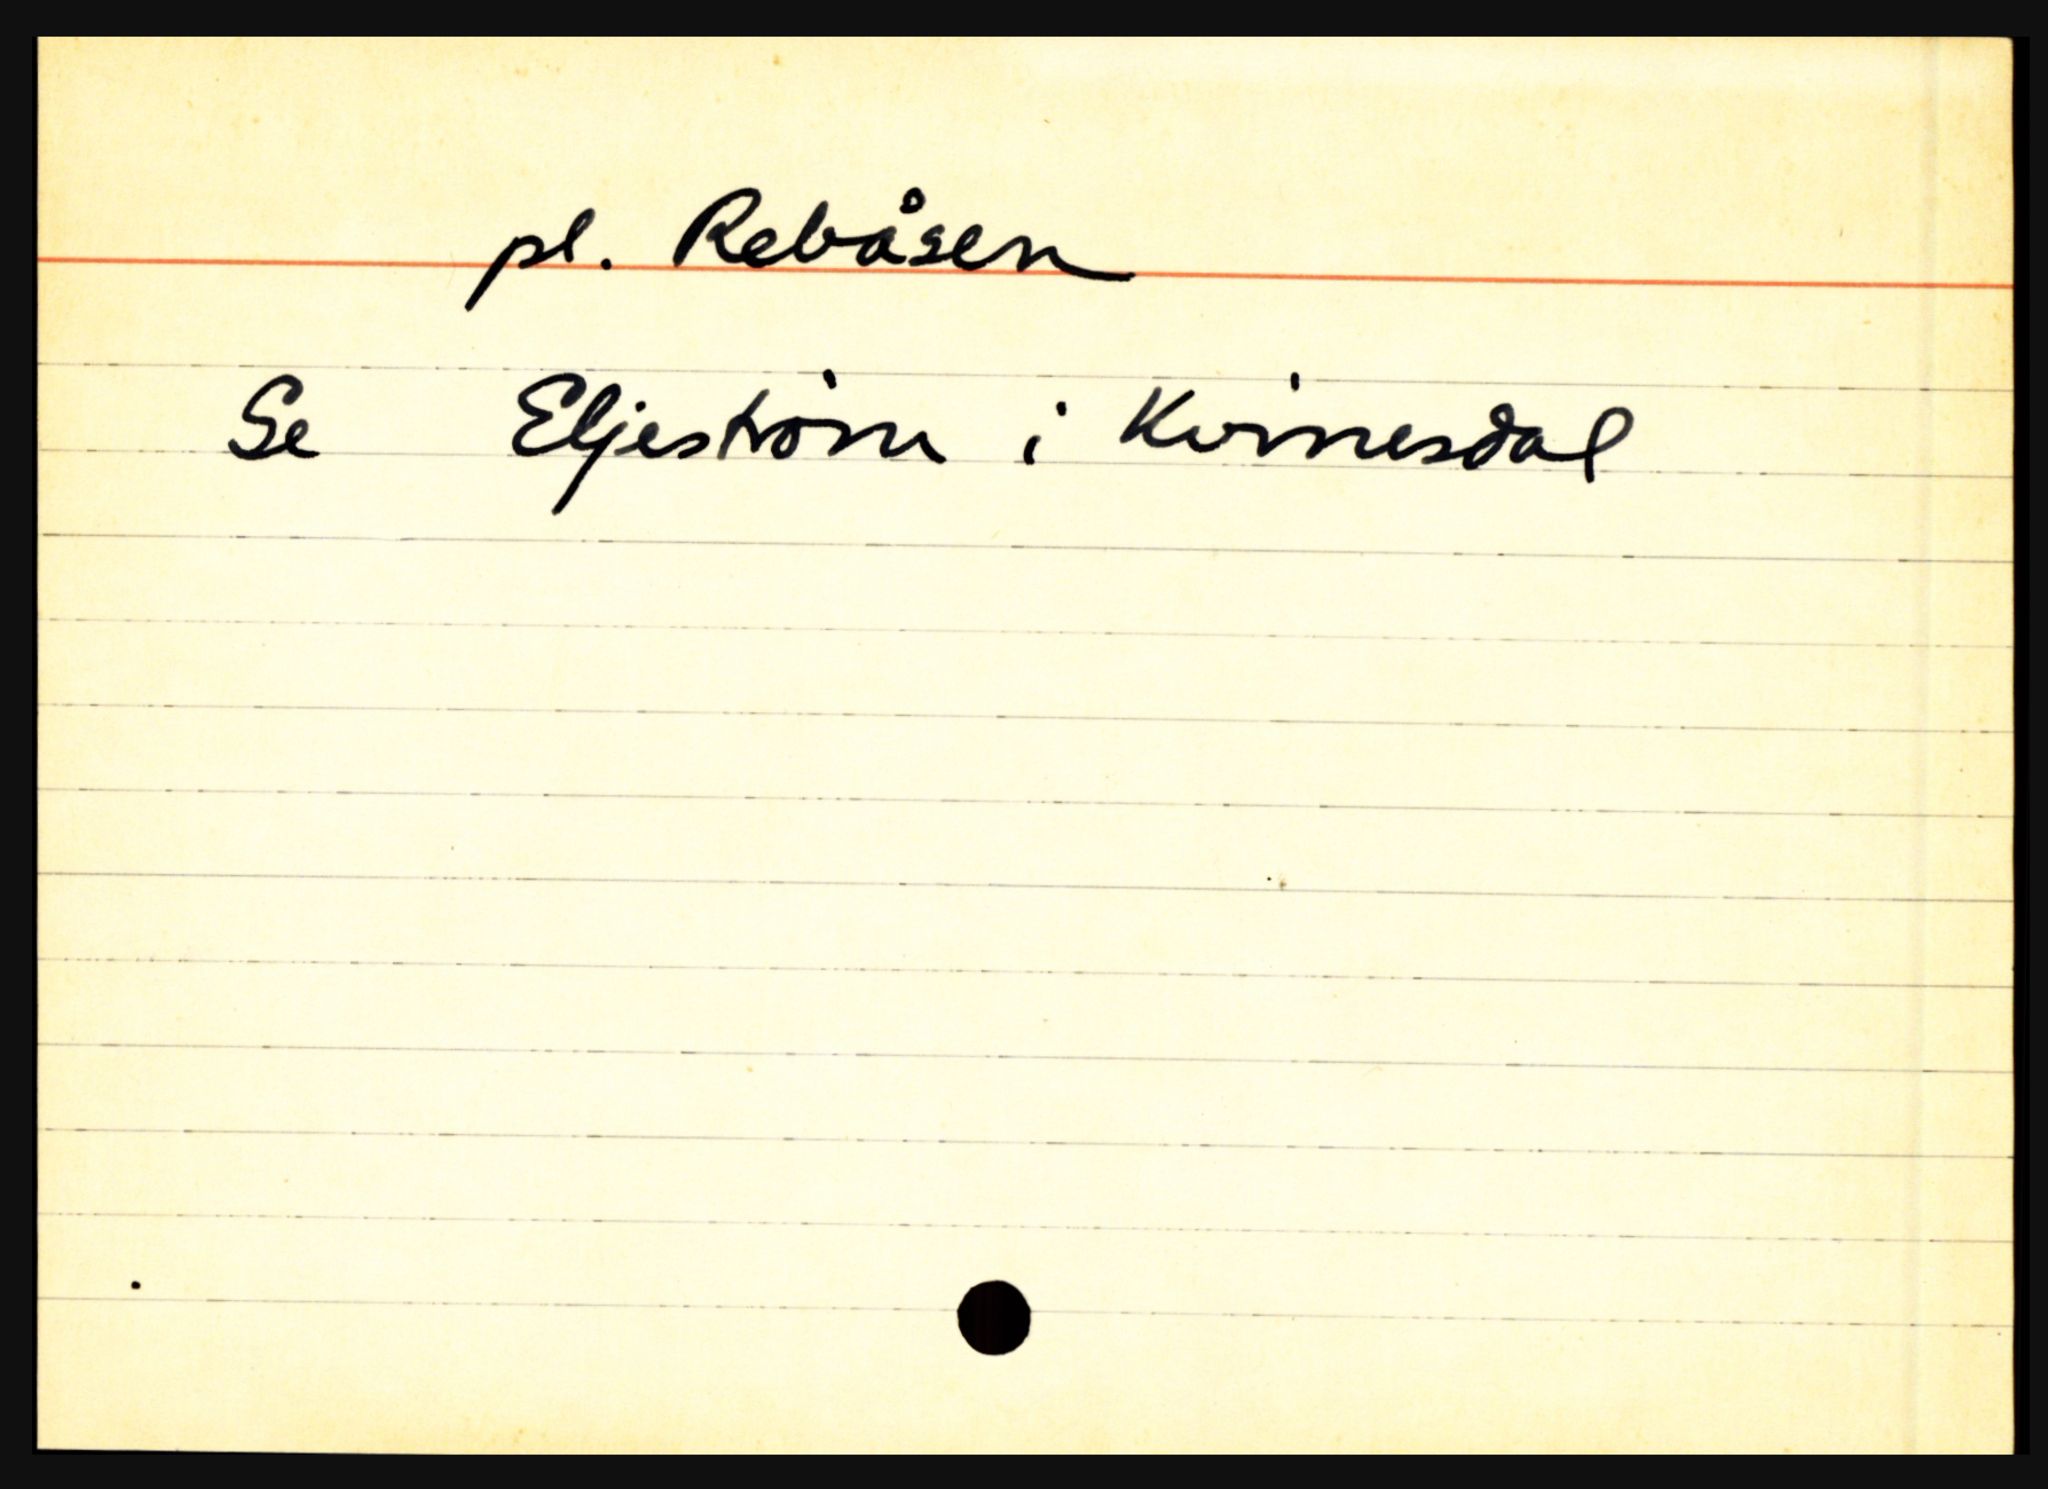 pl. Rebåsen
Se Eljestrøm i Kvinesdal